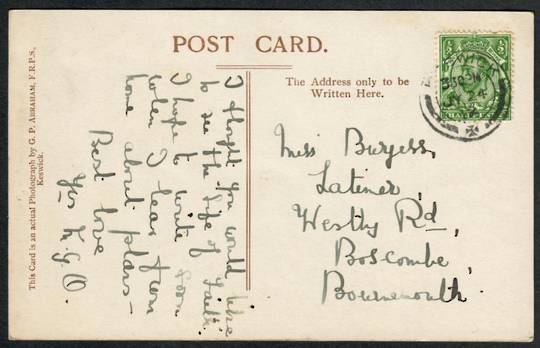 POST CARD.
The Address only to be
Written Here.
This Card is an actual Photograph by G. P. ABRAHAM, F.R.P.S.,
Keswick.
I thought you would like
to see the
I hope to write soon
when I hear from
home about plans —
Best love
Miss Burgess,
Latimer,
Westby Rd,
Boscombe,
Bournemouth.